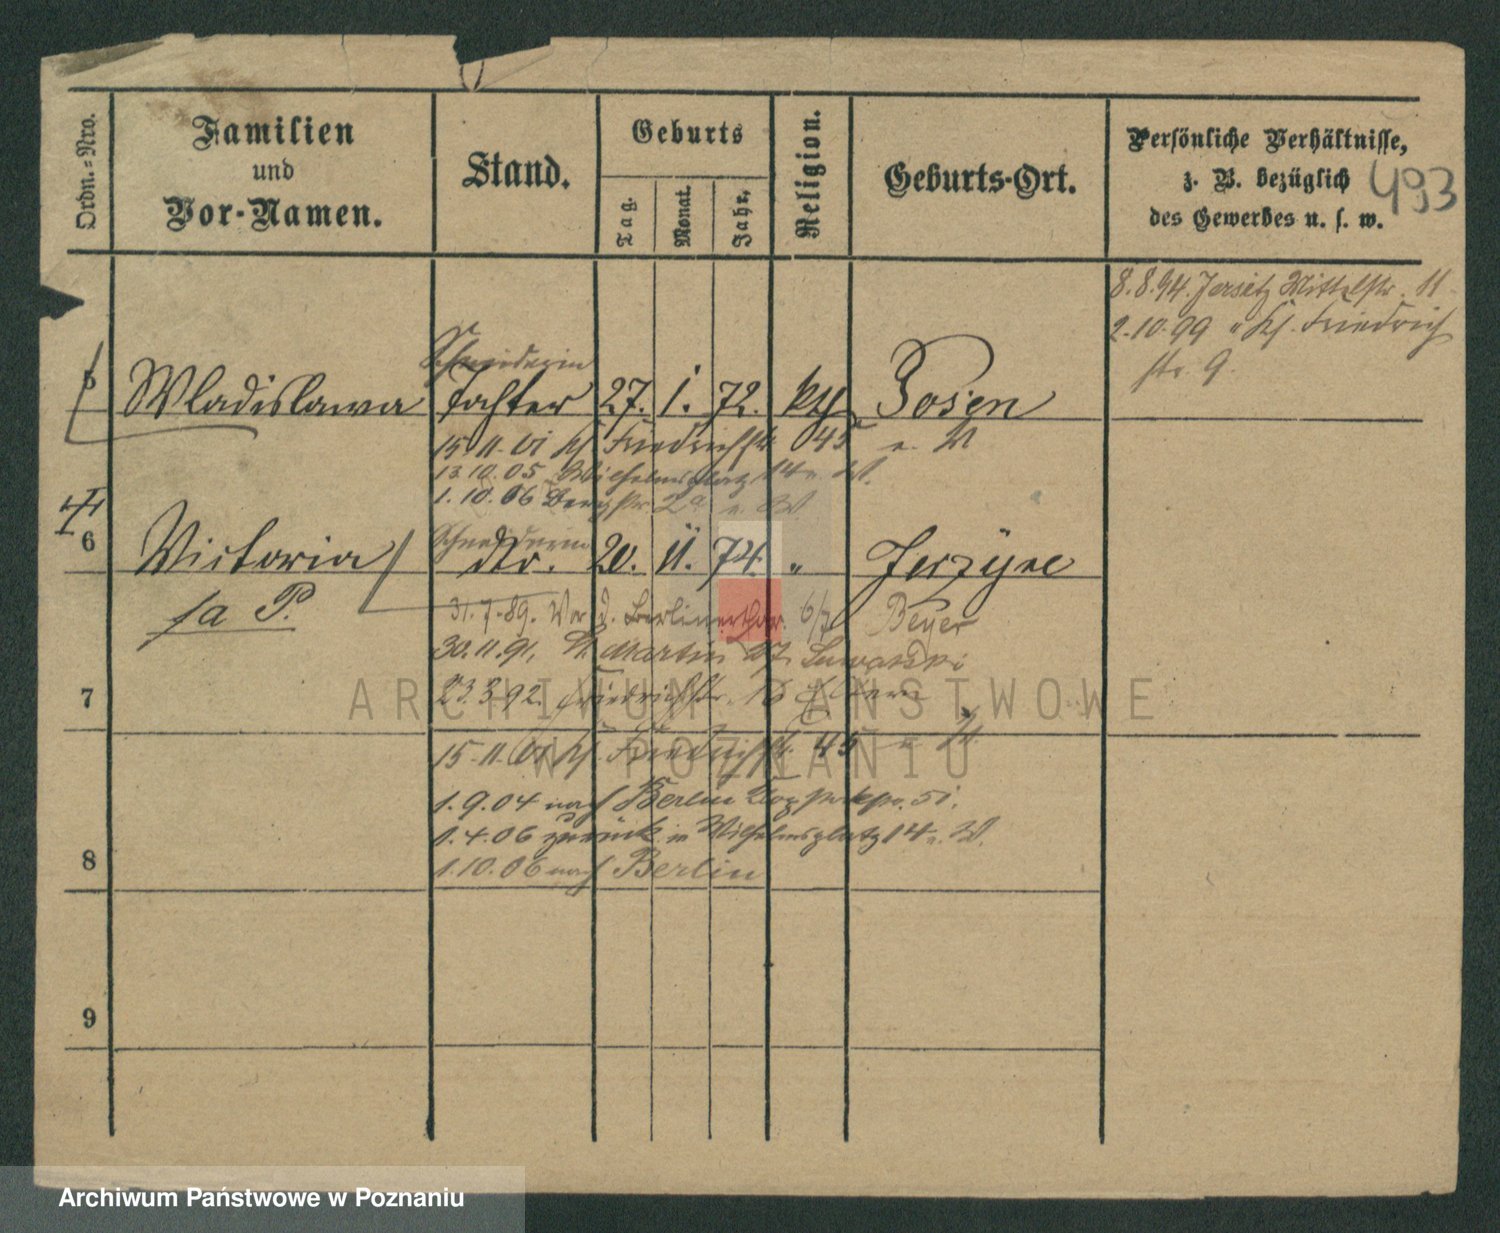 Ordn.-Nro.
Familien
und
Vor-Namen.
Stand.
Geburts
Tag.
Monat.
Jahr.
Religion.
Geburts-Ort.
Persönliche Verhältnisse,
z. B. bezüglich
des Gewerbes u. s. w.
493
8.8.94. Jersitz Mittelstr. 11
2.10.99 Friedrich
str. 9.
Schneiderin
5 Wladislawa Tochter 27. 1. 72. kth Posen
15.11.01 Friedrichstr. 45 W
13.10.05 Wilhelmsplatz 14 W.
1.10.06 2a W
Schneiderin
6 Victoria dto. 20. 11. 74. " Jerzyce
sa P.
31.7.89. Vor d. Berlinerthor 6/7 Beyer
30.11.91. St. Martin 27
7
23.3.92. Friedrichstr. Eltern
15.11.01 Friedrichstr. 45
1.9.04 nach Berlin 51.
1.4.06 zurück in Wilhelmsplatz 14 W.
8
1.10.06 nach Berlin
9
ARCHIWUM PAŃSTWOWE
W POZNANIU
Archiwum Państwowe w Poznaniu